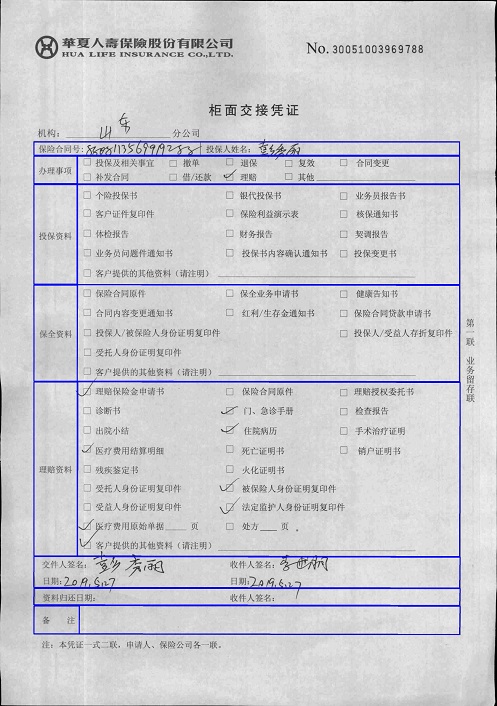 華夏人壽保險股份有限公司
HUA LIFE INSURANCE CO.,LTD.
No. 30051003969788
柜面交接凭证
机构：山东 分公司
保险合同号： 投保人姓名：
办理事项
□ 投保及相关事宜 □ 撤单 □ 退保 □ 复效 □ 合同变更
□ 补发合同 □ 借/还款 ☑ 理赔 □ 其他
投保资料
□ 个险投保书 □ 银代投保书 □ 业务员报告书
□ 客户证件复印件 □ 保险利益演示表 □ 核保通知书
□ 体检报告 □ 财务报告 □ 契调报告
□ 业务员问题件通知书 □ 投保书内容确认通知书 □ 投保变更书
□ 客户提供的其他资料（请注明）
保全资料
□ 保险合同原件 □ 保全业务申请书 □ 健康告知书
□ 合同内容变更通知书 □ 红利/生存金通知书 □ 保险合同贷款申请书
□ 投保人/被保险人身份证明复印件 □ 投保人/受益人存折复印件
□ 受托人身份证明复印件
□ 客户提供的其他资料（请注明）
理赔资料
☑ 理赔保险金申请书 □ 保险合同原件 □ 理赔授权委托书
□ 诊断书 ☑ 门、急诊手册 □ 检查报告
□ 出院小结 ☑ 住院病历 □ 手术治疗证明
☑ 医疗费用结算明细 □ 死亡证明书 □ 销户证明书
□ 残疾鉴定书 □ 火化证明书
□ 受托人身份证明复印件 ☑ 被保险人身份证明复印件
□ 受益人身份证明复印件 ☑ 法定监护人身份证明复印件
☑ 医疗费用原始单据 页 □ 处方 页。
☑ 客户提供的其他资料（请注明）
交件人签名： 收件人签名：
日期：2019.5.27 日期：2019.5.27
资料归还日期： 收件人签名：
备 注
注：本凭证一式二联，申请人、保险公司各一联。
第一联 业务留存联